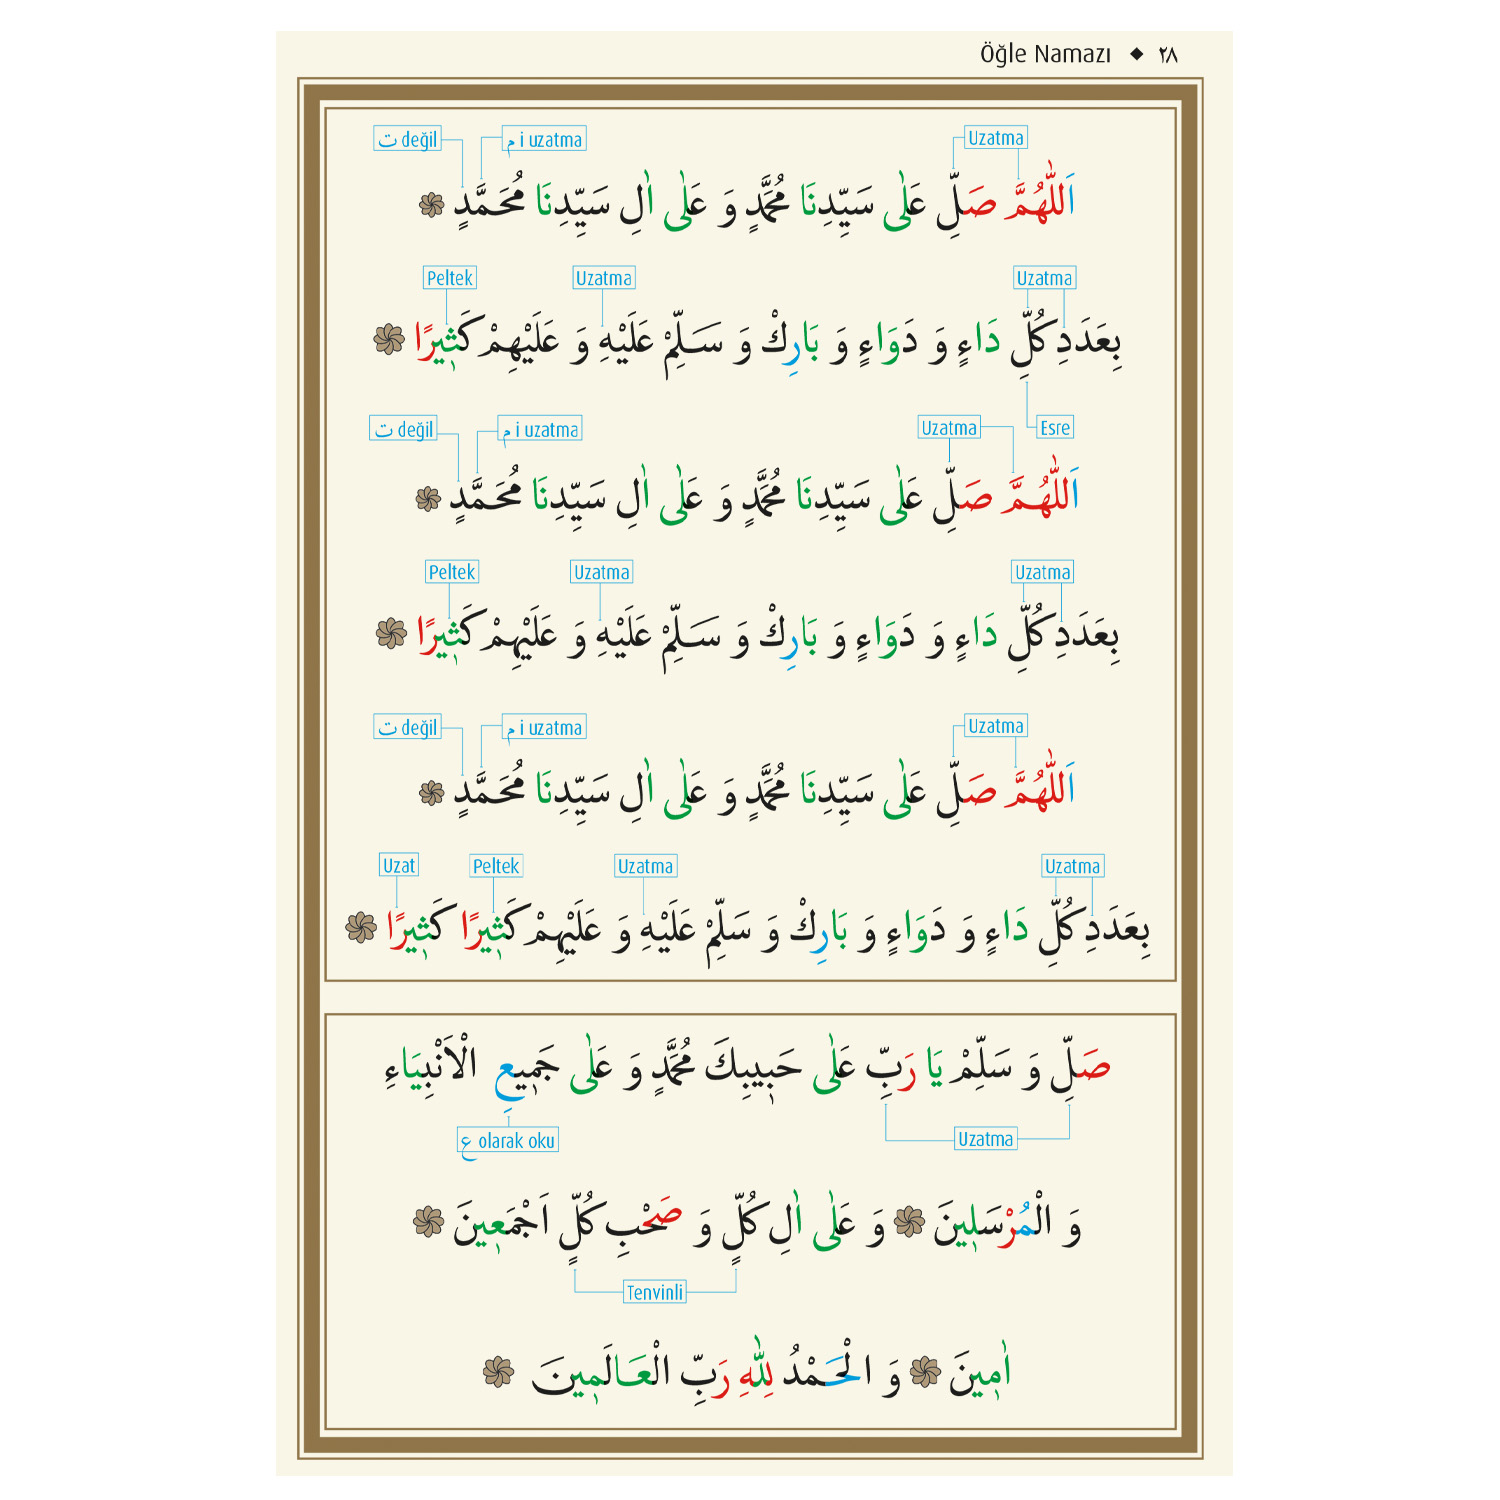 Öğle Namazı ◆ ٢٨
Uzatma م i uzatma ت değil
اَللّٰهُمَّ صَلِّ عَلٰى سَيِّدِنَا مُحَمَّدٍ وَ عَلٰى اٰلِ سَيِّدِنَا مُحَمَّدٍ
Uzatma Uzatma Peltek
بِعَدَدِ كُلِّ دَاءٍ وَ دَوَاءٍ وَ بَارِكْ وَ سَلِّمْ عَلَيْهِ وَ عَلَيْهِمْ كَثٖيرًا
Esre Uzatma م i uzatma ت değil
اَللّٰهُمَّ صَلِّ عَلٰى سَيِّدِنَا مُحَمَّدٍ وَ عَلٰى اٰلِ سَيِّدِنَا مُحَمَّدٍ
Uzatma Uzatma Peltek
بِعَدَدِ كُلِّ دَاءٍ وَ دَوَاءٍ وَ بَارِكْ وَ سَلِّمْ عَلَيْهِ وَ عَلَيْهِمْ كَثٖيرًا
Uzatma م i uzatma ت değil
اَللّٰهُمَّ صَلِّ عَلٰى سَيِّدِنَا مُحَمَّدٍ وَ عَلٰى اٰلِ سَيِّدِنَا مُحَمَّدٍ
Uzatma Uzatma Peltek Uzat
بِعَدَدِ كُلِّ دَاءٍ وَ دَوَاءٍ وَ بَارِكْ وَ سَلِّمْ عَلَيْهِ وَ عَلَيْهِمْ كَثٖيرًا كَثٖيرًا
صَلِّ وَ سَلِّمْ يَا رَبِّ عَلٰى حَبٖيبِكَ مُحَمَّدٍ وَ عَلٰى جَمٖيعِ الْاَنْبِيَاءِ
Uzatma ع olarak oku
وَ الْمُرْسَلٖينَ وَ عَلٰى اٰلِ كُلٍّ وَ صَحْبِ كُلٍّ اَجْمَعٖينَ
Tenvinli
اٰمٖينَ وَ الْحَمْدُ لِلّٰهِ رَبِّ الْعَالَمٖينَ